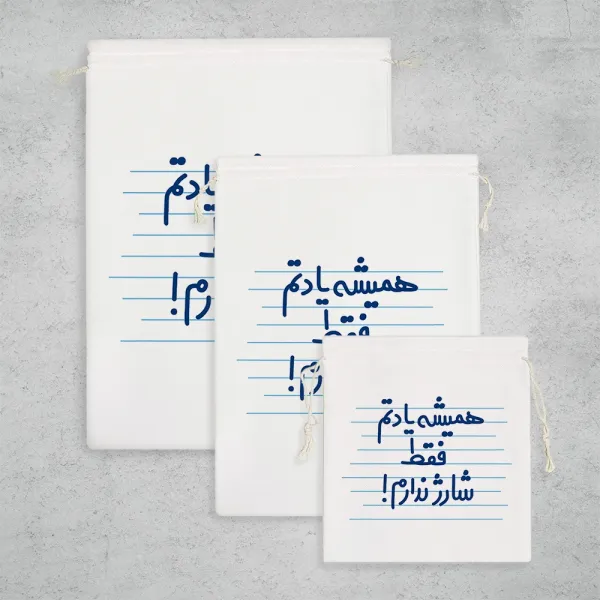 همیشه یادتم
فقط
شارژ ندارم!
همیشه یادتم
فقط
رم!
یادتم
ط
رم!